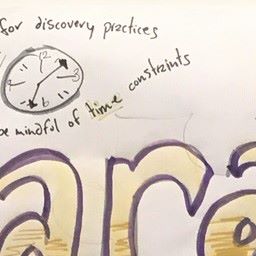 for discovery practices
12
6
be mindful of time constraints
ara